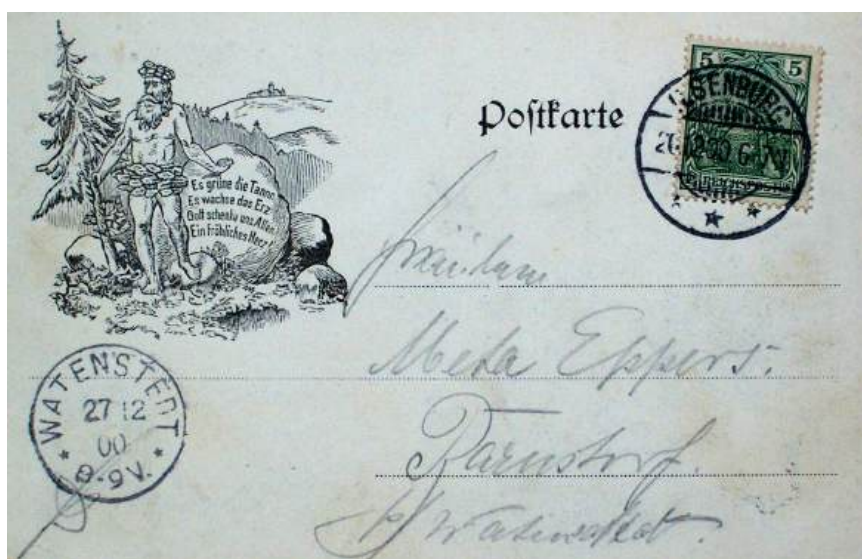 Es grüne die Tanne
Es wachse das Erz
Gott schenke uns Allen
Ein fröhliches Herz!
Postkarte
5 5
ILSENBURG
Fräulein
Meta Eppers.
Barnstorf.
b/ Watenstedt.
WATENSTEDT
27 12
00
8-9V.